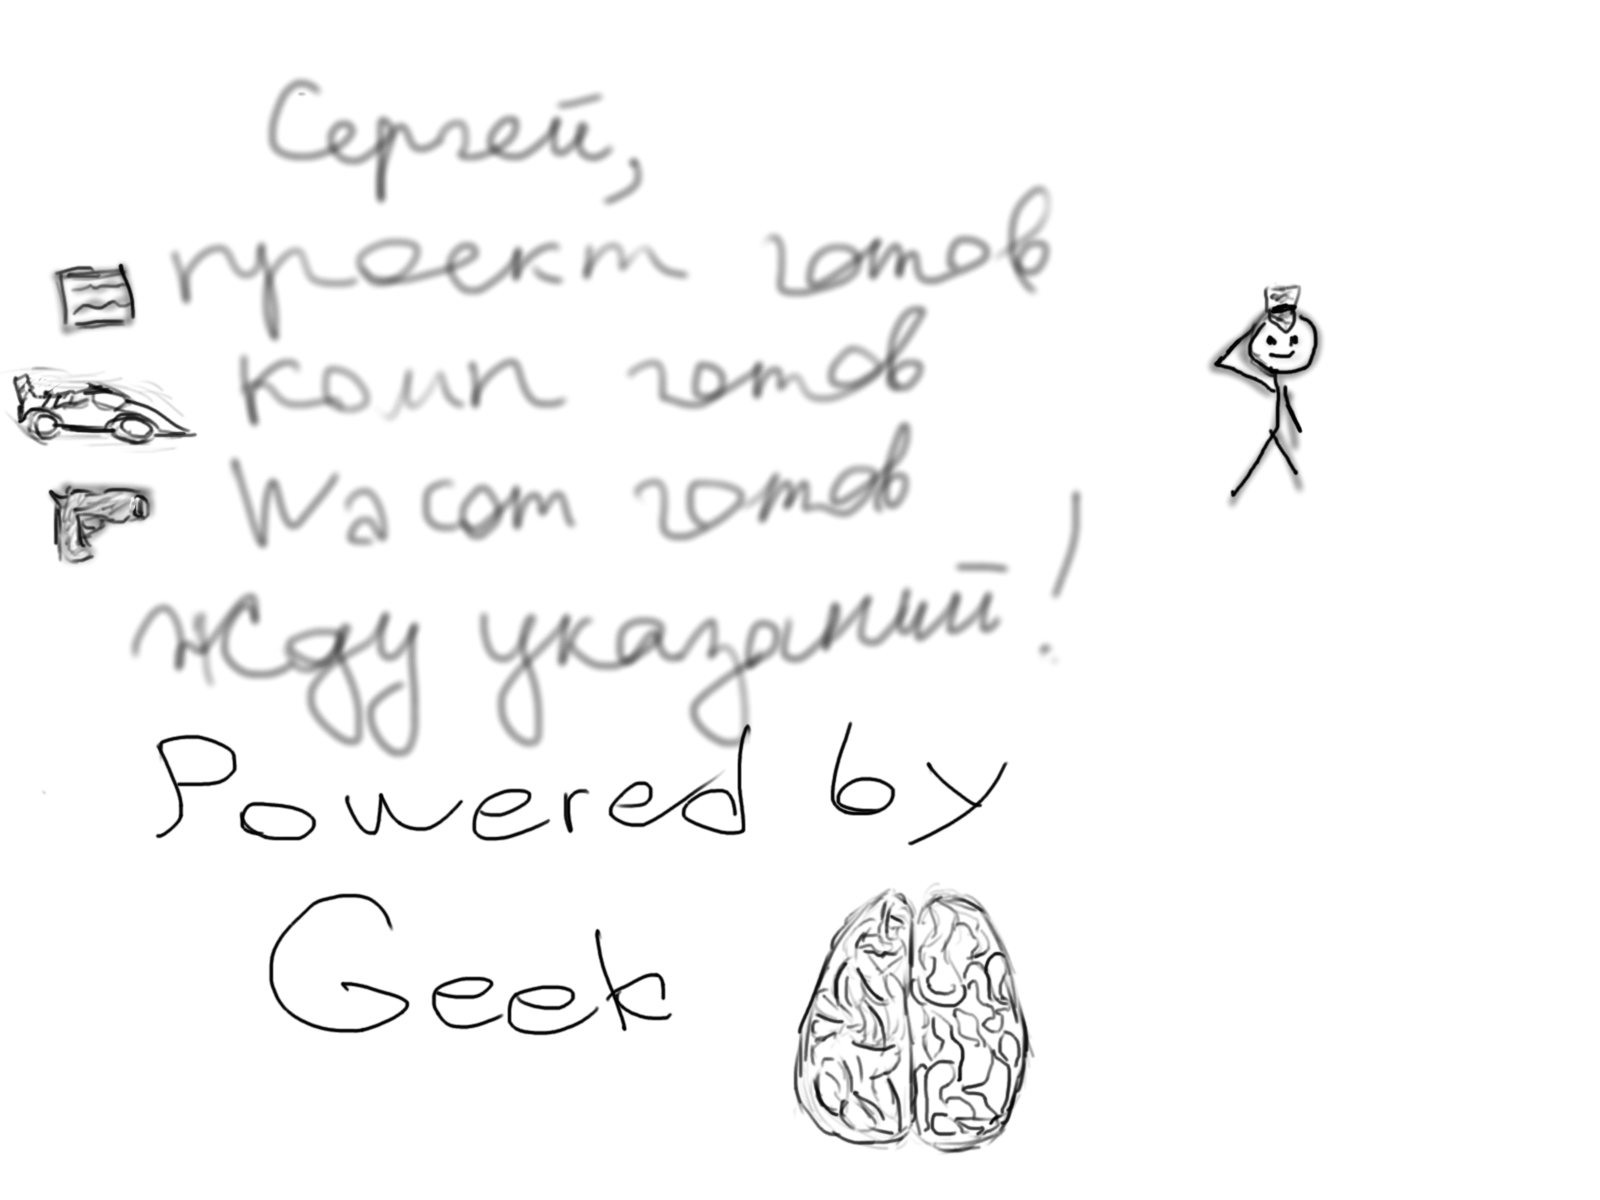 Сергей,
проект готов
комп готов
Wacom готов
Жду указаний!
Powered by
Geek